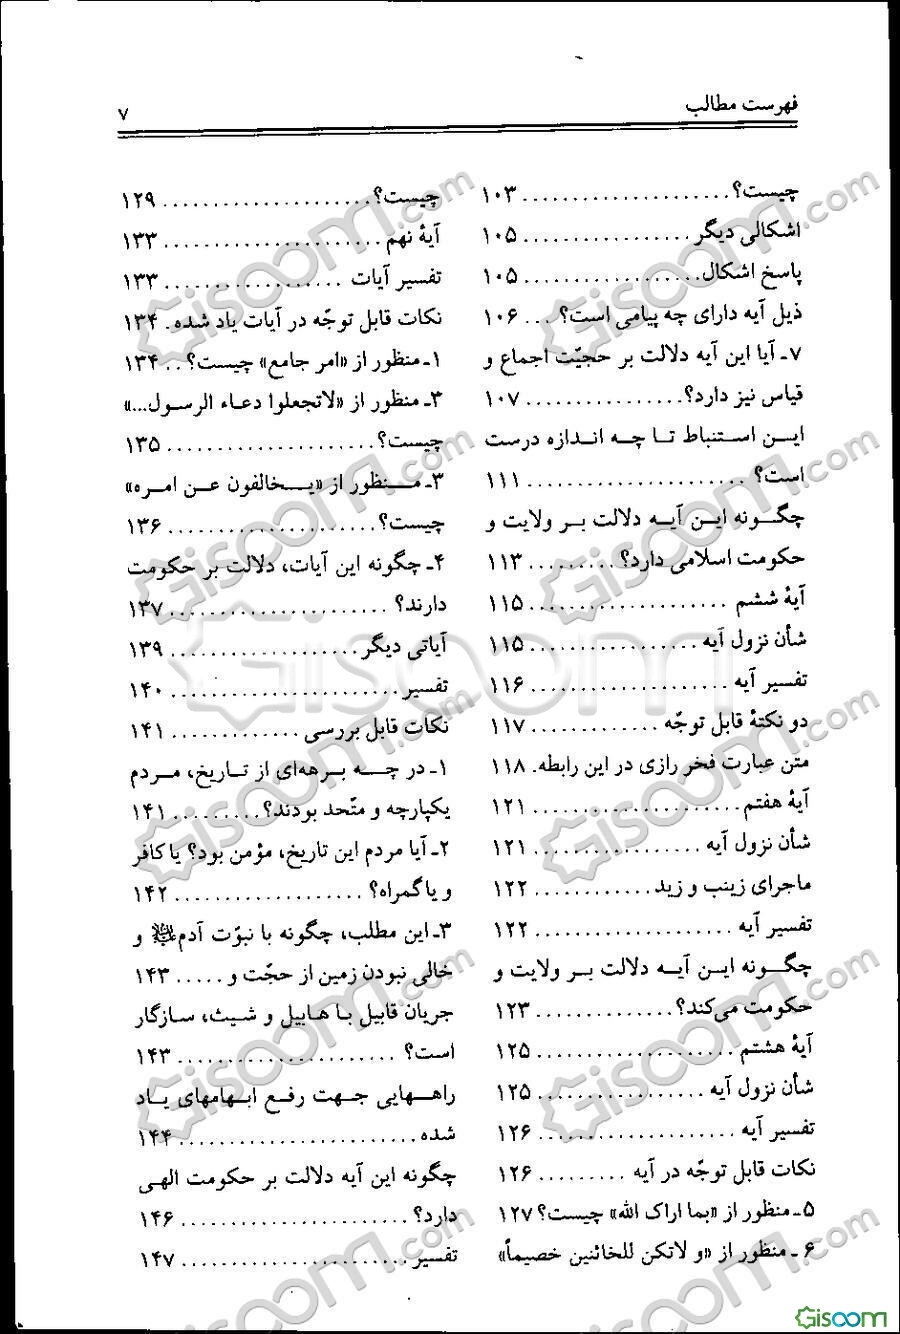 فهرست مطالب
۷
چیست؟ ..................... ۱۰۳
اشکالی دیگر ................. ۱۰۵
پاسخ اشکال .................. ۱۰۵
ذیل آیه دارای چه پیامی است؟ ... ۱۰۶
۷ـ آیا این آیه دلالت بر حجیّت اجماع و
قیاس نیز دارد؟ ................ ۱۰۷
ایـن اسـتنباط تـا چـه انـدازه درست
است؟ ...................... ۱۱۱
چگـونه ایـن آیـه دلالت بـر ولایت و
حکومت اسلامی دارد؟ ......... ۱۱۳
آیهٔ ششم .................... ۱۱۵
شأن نزول آیه ................. ۱۱۵
تفسیر آیه .................... ۱۱۶
دو نکتهٔ قابل توجّه ............. ۱۱۷
متن عبارت فخر رازی در این رابطه. ۱۱۸
آیهٔ هفتم .................... ۱۲۱
شأن نزول آیه ................. ۱۲۱
ماجرای زینب و زید ............ ۱۲۲
تفسیر آیه .................... ۱۲۲
چگـونه ایـن آیـه دلالت بـر ولایت و
حکومت می‌کند؟ .............. ۱۲۳
آیهٔ هشتم .................... ۱۲۵
شأن نزول آیه ................. ۱۲۵
تفسیر آیه .................... ۱۲۶
نکات قابل توجّه در آیه ......... ۱۲۶
۵ـ منظور از «بما اراک الله» چیست؟ ۱۲۷
۶ـ منظور از «و لاتکن للخائنین خصیماً»
چیست؟ ..................... ۱۲۹
آیهٔ نهم ..................... ۱۳۳
تفسیر آیات .................. ۱۳۳
نکات قابل توجّه در آیات یاد شده. ۱۳۴
۱ـ منظور از «امر جامع» چیست؟ .. ۱۳۴
۳ـ منظور از «لاتجعلوا دعـاء الرسـول...»
چیست؟ ..................... ۱۳۵
۳ـ مـنظور از «یـخالفون عـن امـره»
چیست؟ ..................... ۱۳۶
۴ـ چگونه این آیات، دلالت بر حکومت
دارند؟ ...................... ۱۳۷
آیاتی دیگر ................... ۱۳۹
تفسیر ....................... ۱۴۰
نکات قابل بررسی ............. ۱۴۱
۱ـ در چـه بـرهه‌ای از تـاریخ، مـردم
یکپارچه و متّحد بودند؟ ......... ۱۴۱
۲ـ آیا مردم این تاریخ، مؤمن بود؟ یا کافر
و یا گمراه؟ ................... ۱۴۲
۳ـ این مطلب، چگونه با نبوّت آدم و
خالی نبودن زمین از حجّت و ..... ۱۴۳
جریان قابیل بـا هـابیل و شـیث، سـازگار
است؟ ...................... ۱۴۳
راهـهایی جـهت رفـع ابـهامهای یـاد
شده ....................... ۱۴۴
چگونه این آیه دلالت بر حکومت الهی
دارد؟ ...................... ۱۴۶
تفسیر ....................... ۱۴۷
Gisoom.com
Gisoom